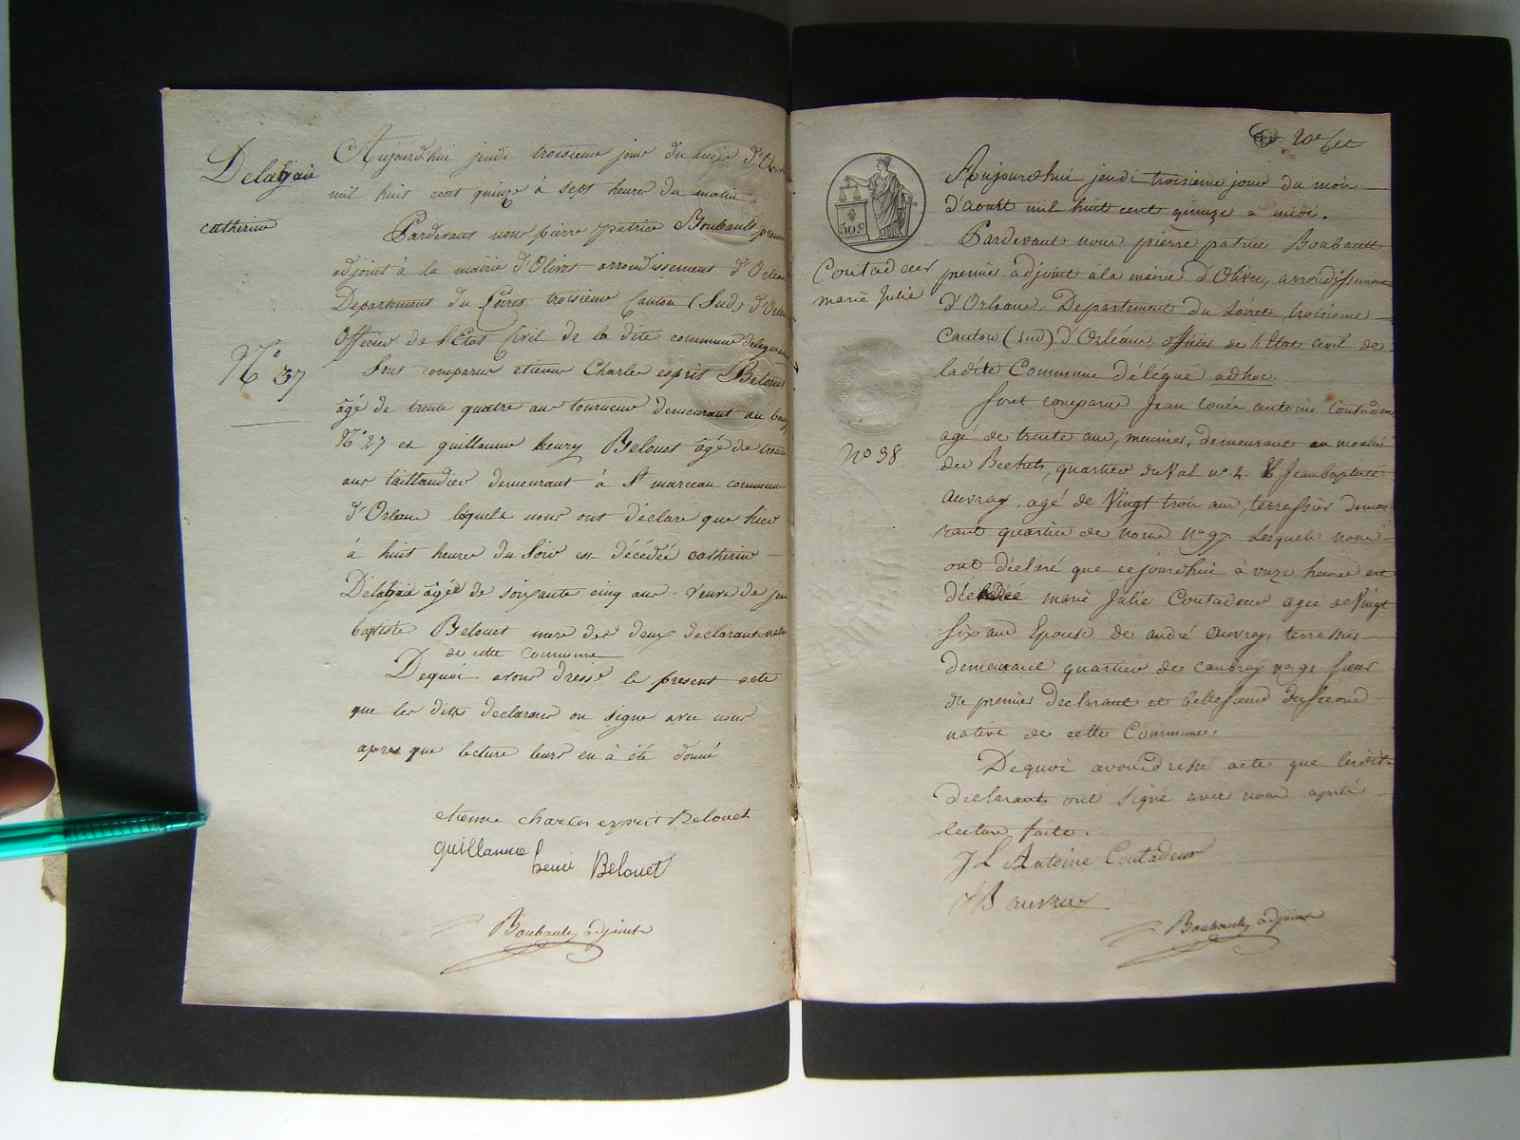 Delagaie
catherine
N° 37
Aujourdhui jeudi troisieme jour du mois d'
mil huit cent quinze à sept heure du matin
Pardevant nous pierre patrice Boubault premier
adjoint à la mairie d'Olivet arrondissement d'Orleans
Departement du Loiret troisieme Canton (Sud) d'Orleans
Officier de l'Etat Civil de la dite commune delegué
Sont comparus etienne Charles esprit Belouet
âgé de trente quatre ans tourneur demeurant au bourg
N° 27 et guillaume henry Belouet âgé de trente
ans taillandier demeurant à St marceau commune
d'Orleans lesquels nous ont déclaré que hier
à huit heures du Soir est décédée catherine
Delagaie âgée de soixante cinq ans Veuve de jean
baptiste Belouet mere des deux declarants native
de cette commune
Dequoi avons dressé le present acte
que les dits declarans on signe avec nous
apres que lecture leurs en à été donné
etienne charles esprit Belouet
guillaume henri Belouet
Boubault adjoint
20e
Contadeur
marie Julie
N° 38
Aujourdhui jeudi troisieme jour du mois
d'aoust mil huit cent quinze à midi.
Pardevant nous pierre patrice Boubault
premier adjoint à la mairie d'Olivet, arrondissement
d'Orleans Departement du Loiret, troisieme
Canton (Sud) d'Orléans officier de l'Etat civil de
ladite Commune délégué adhoc.
Sont comparu Jean Louis antoine Contadeur
agé de trente ans, meunier, demeurant au moulin
des Bechets, quartier du Val n° 4. & Jean baptiste
auvray, agé de Vingt trois ans, terrassier demeu
rant quartier de n° 97 Lesquels nous
ont déclaré que cejourdhui à onze heures est
décédée marie Julie Contadeur agée de Vingt
six ans Epouse de andré auvray, terrassier
demeurant quartier de couvray soeur
du premier declarant et bellesoeur du second
native de cette Commune.
Dequoi avons dressé acte que lesdits
declarants ont signé avec nous après
lecture faite.
J L Antoine Contadeur
JB auvray
Boubault adjoint